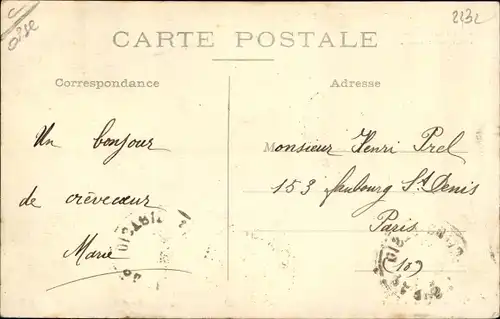 Oise
2232
CARTE POSTALE
Correspondance
Adresse
Un bonjour
de crèvecœur
Marie
Monsieur Henri Prel
153 faubourg St Denis
Paris
(10)